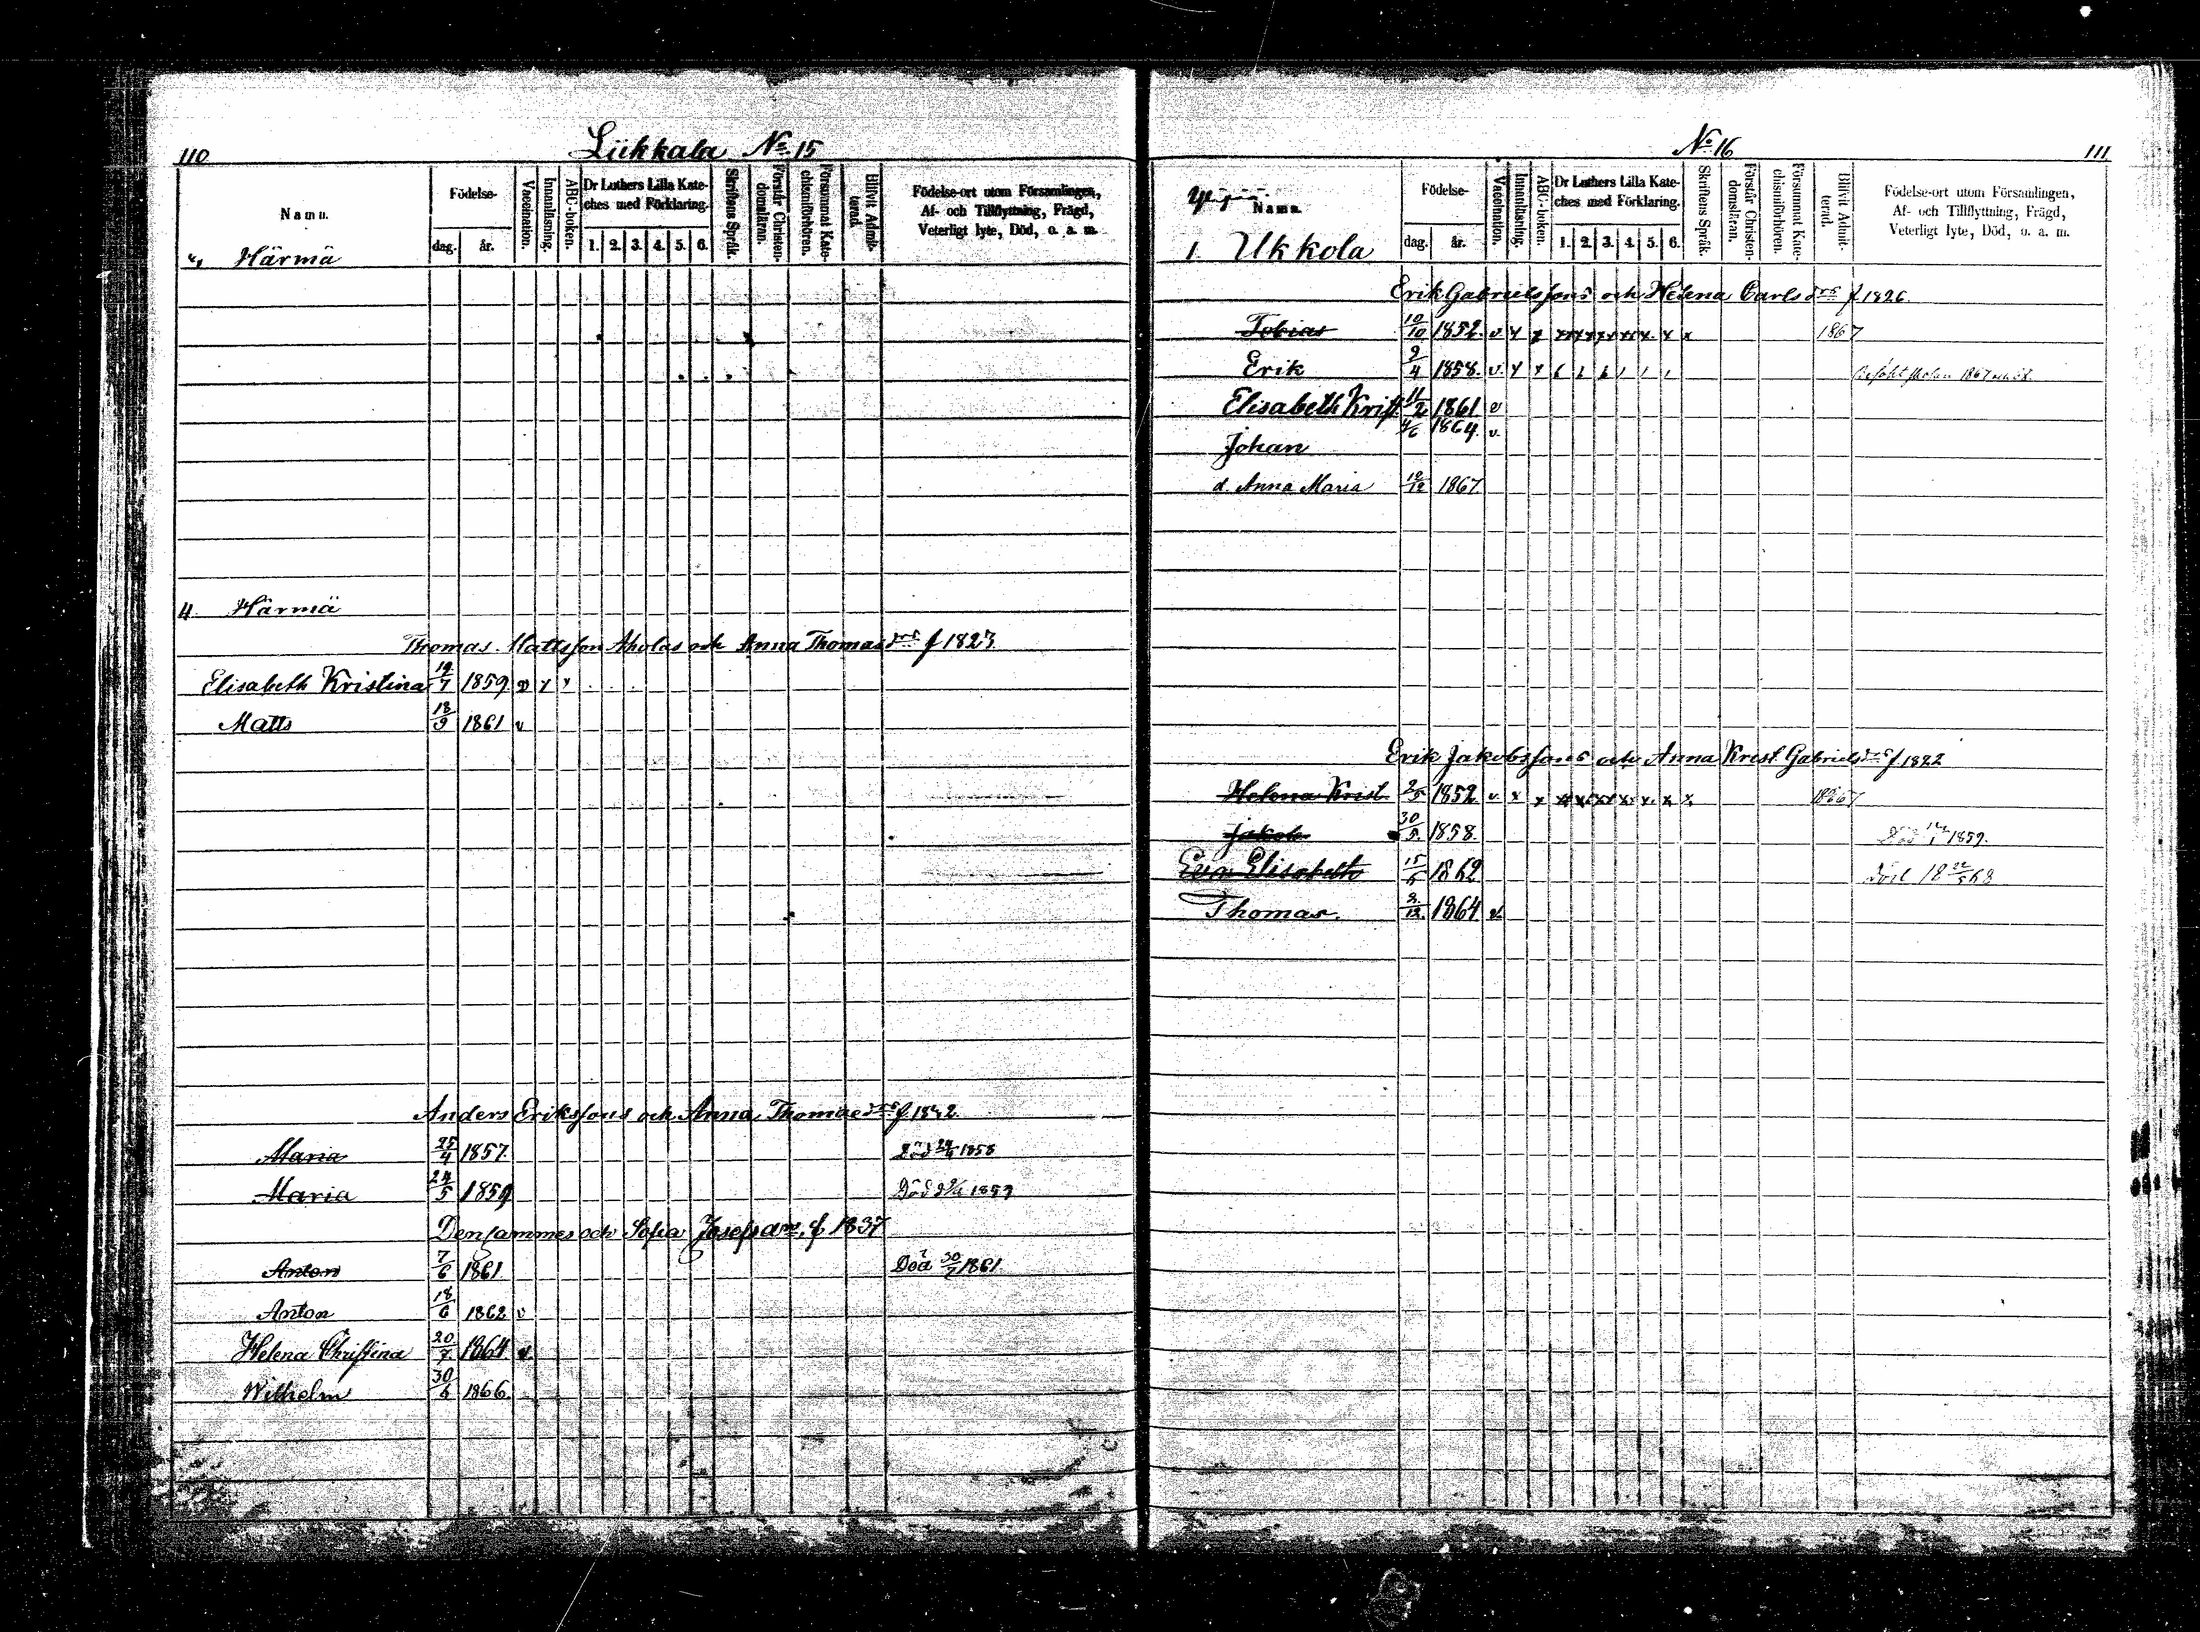 110
Liikkala No. 15
Namn.
Födelse-
dag. år.
Vaccination.
Innanläsning.
ABC-boken.
Dr Luthers Lilla Kate-
ches med Förklaring.
1. 2. 3. 4. 5. 6.
Skriftens Språk.
Förstår Christen-
domsläran.
Försummat Kate-
chismiförhören.
Blifvit Admit-
terad.
Födelse-ort utom Församlingen,
Af- och Tillflyttning, Frägd,
Veterligt lyte, Död, o. a. m.
Härmä
4. Härmä
Thomas Mattsson Aholas och Anna Thomasdrs f 1823.
Elisabeth Kristina 19/7 1859 v x x
Matts 18/9 1861 v
Anders Erikssons och Anna Thomasdrs f 1842
Maria 25/4 1857. Död 1858
Maria 24/5 1859 Död 1859
Densammes och Sofia Josefsdrs. f 1837
Anton 7/6 1861 Död 30/7 1861
Anton 18/6 1862 v
Helena Christina 20/7 1864 v
Wilhelm 30/6 1866.
No 16
111
Namn.
Födelse-
dag. år.
Vaccination.
Innanläsning.
ABC-boken.
Dr Luthers Lilla Kate-
ches med Förklaring.
1. 2. 3. 4. 5. 6.
Skriftens Språk.
Förstår Christen-
domsläran.
Försummat Kate-
chismiförhören.
Blifvit Admit-
terad.
Födelse-ort utom Församlingen,
Af- och Tillflyttning, Frägd,
Veterligt lyte, Död, o. a. m.
1. Ukkola
Erik Gabrielssons och Helena Carlsdrs f 1826.
Tobias 10/10 1852. v x x 1867
Erik 9/4 1858. v. x x 1867
Elisabeth Krist. 11/2 1861 v
Johan 4/6 1864. v.
d. Anna Maria 12/12 1867
Erik Jakobssons och Anna Krist. Gabrielsdrs f 1822
Helena Krist. 2/5 1852 v. x x 1867
Jakob 30/5. 1858. Död 1859.
Eva Elisabeth 15/6 1862 Död 18 22/5 68
Thomas. 2/12. 1864 v.